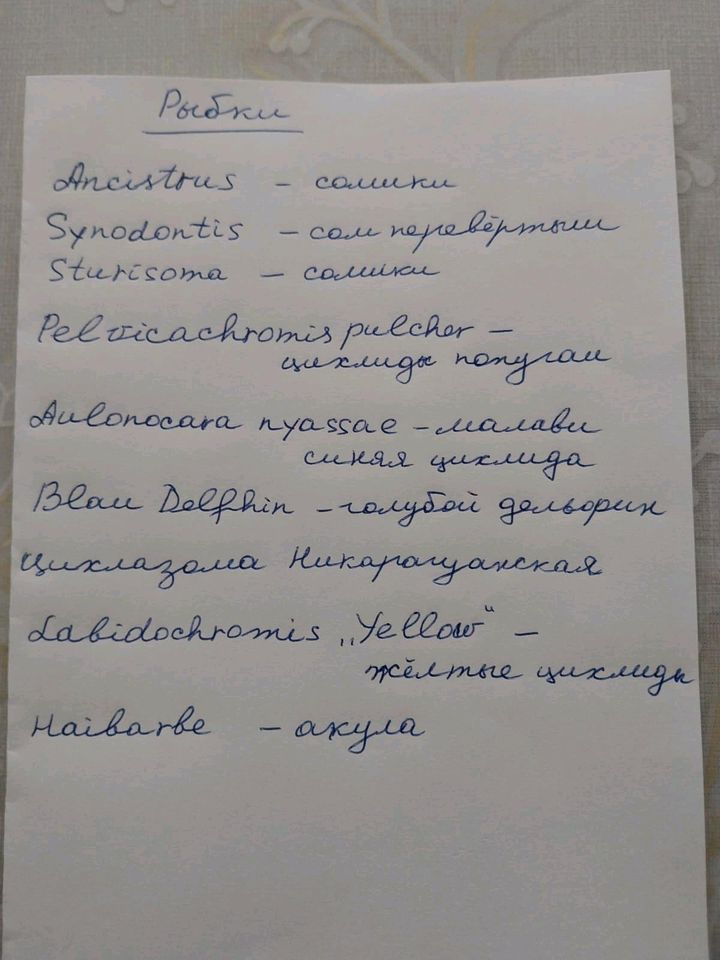 Рыбки
Ancistrus - сомики
Synodontis - сом перевёртыш
Sturisoma - сомики
Pelvicachromis pulcher -
цихлиды попугаи
Aulonocara nyassae - малави
синяя цихлида
Blau Delfhin - голубой дельфин
Цихлазома Никарагуанская
Labidochromis „Yellow" -
жёлтые цихлиды
Haibarbe - акула